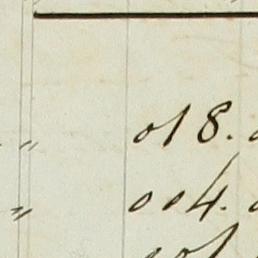 " 018.
" 004.